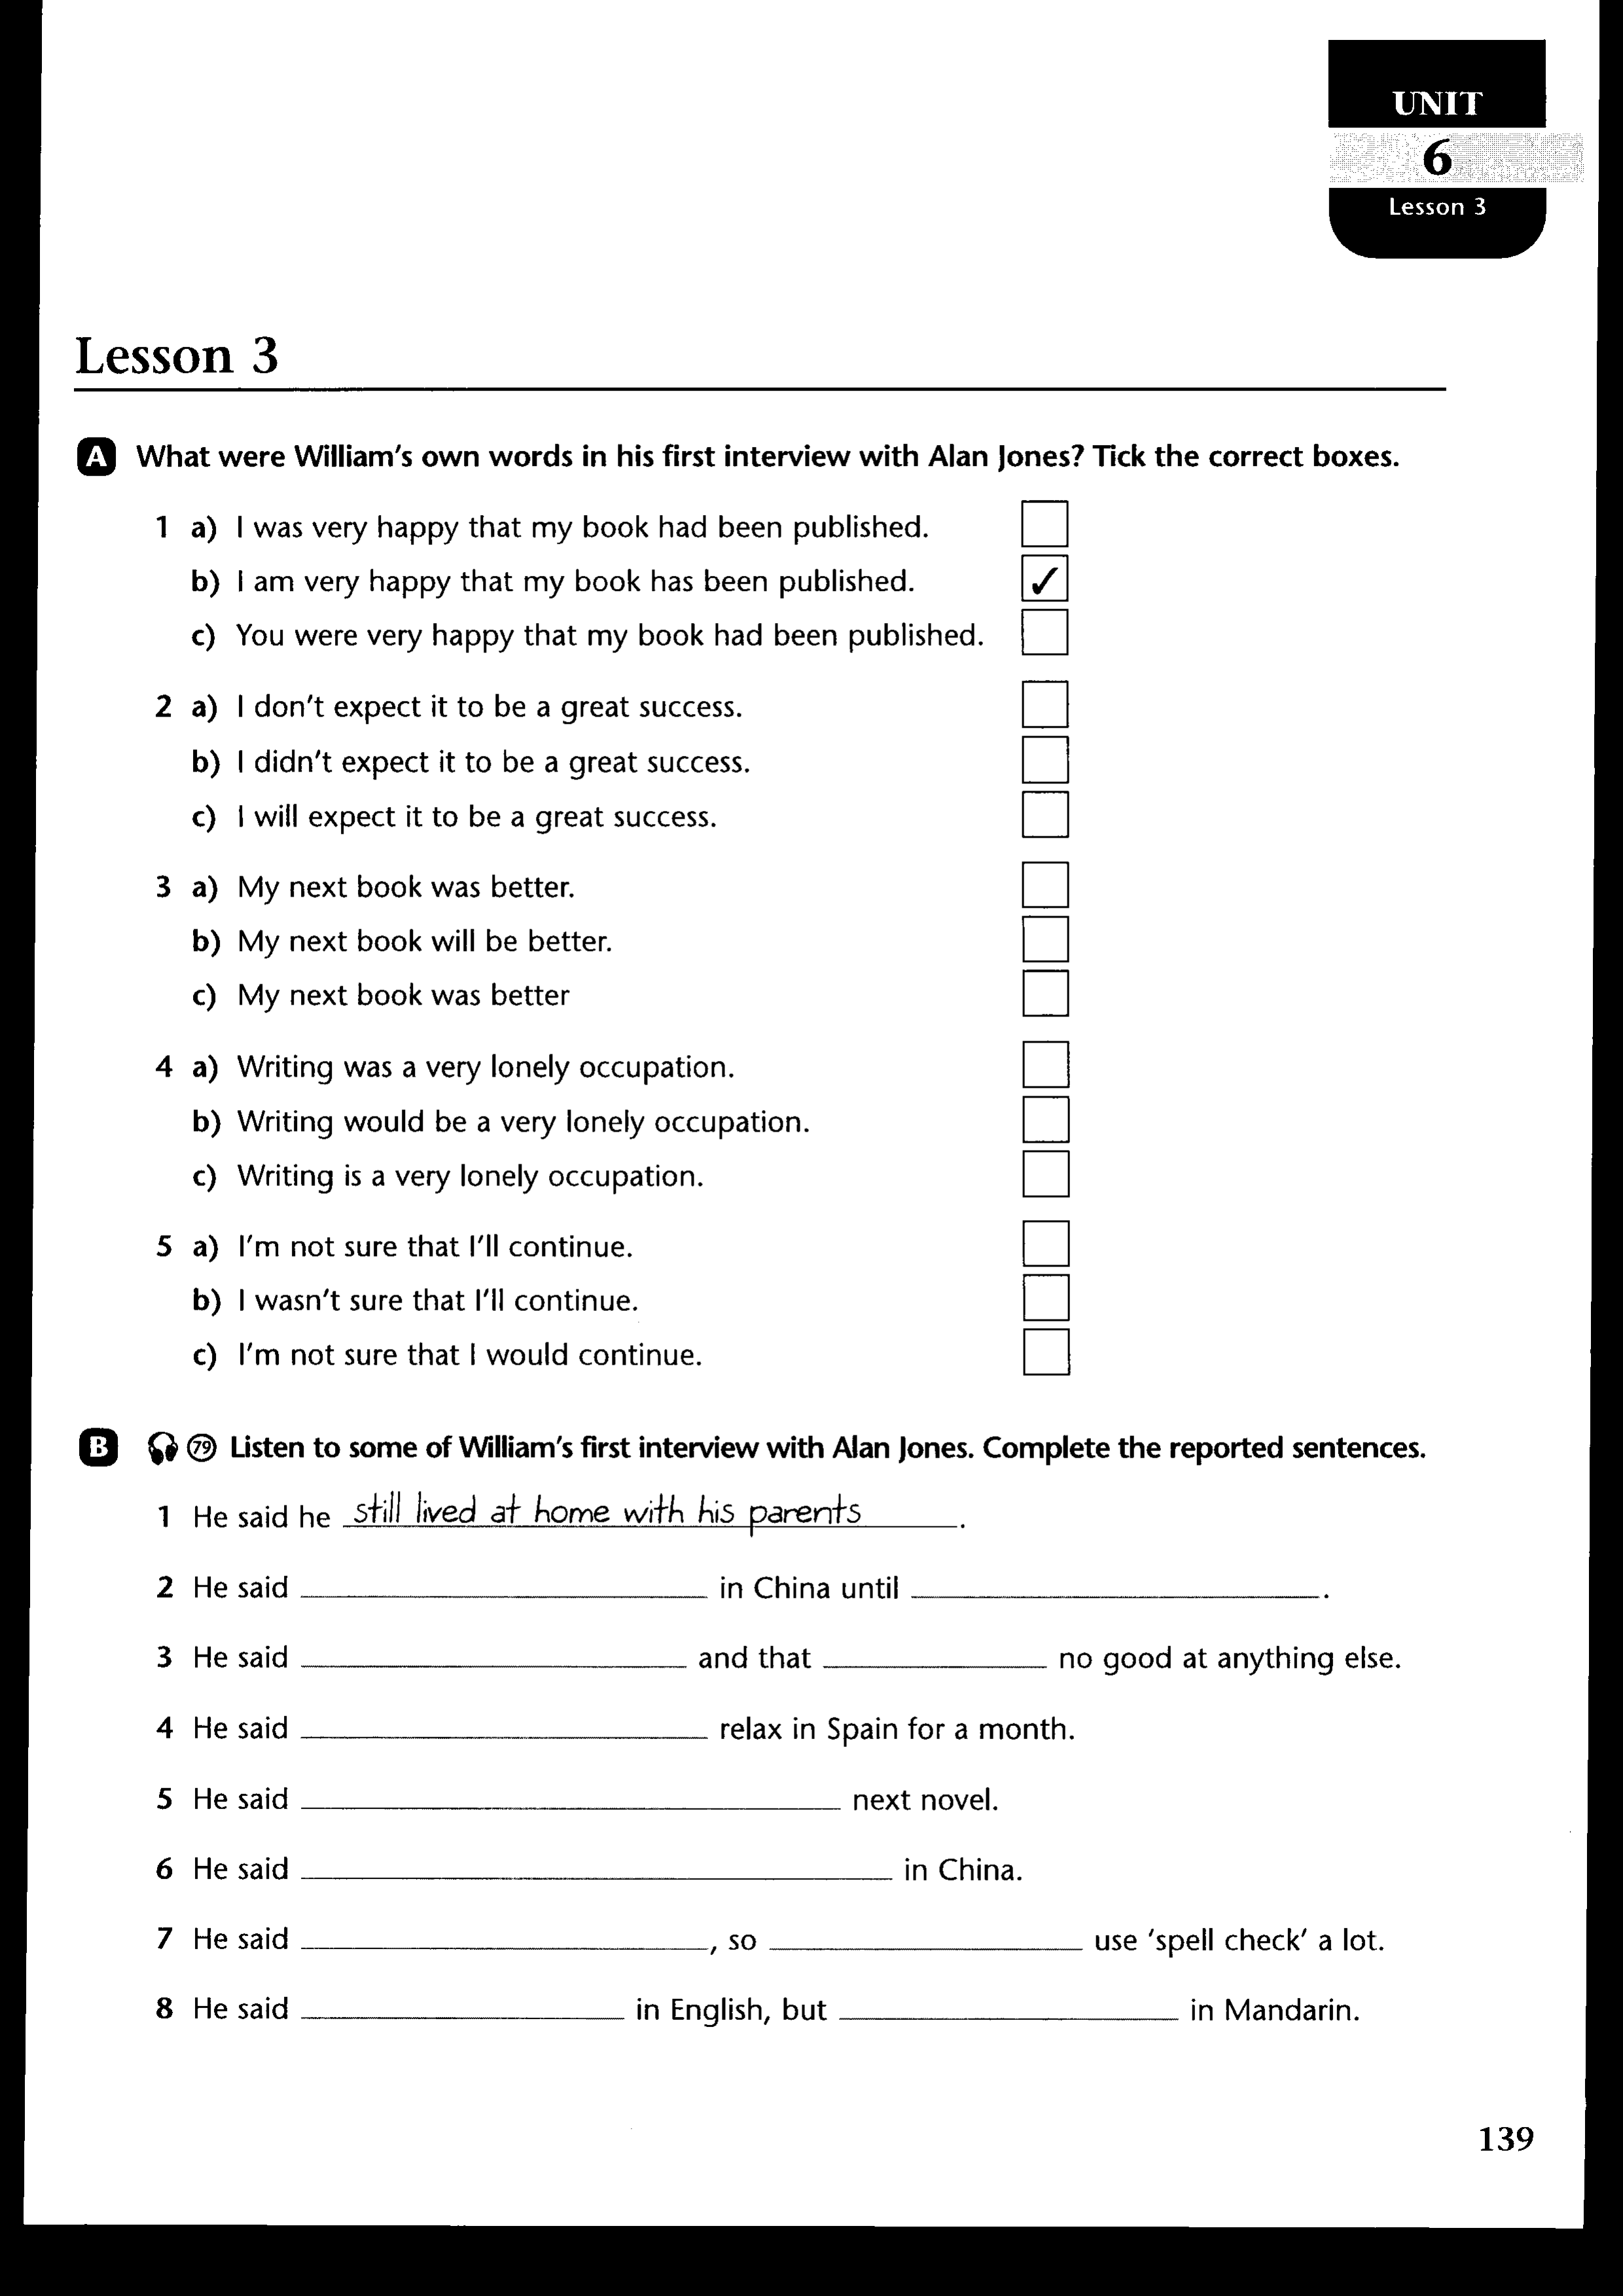 UNIT
6
Lesson 3
Lesson 3
A What were William's own words in his first interview with Alan Jones? Tick the correct boxes.
1 a) I was very happy that my book had been published.
b) I am very happy that my book has been published. ✓
c) You were very happy that my book had been published.
2 a) I don't expect it to be a great success.
b) I didn't expect it to be a great success.
c) I will expect it to be a great success.
3 a) My next book was better.
b) My next book will be better.
c) My next book was better
4 a) Writing was a very lonely occupation.
b) Writing would be a very lonely occupation.
c) Writing is a very lonely occupation.
5 a) I'm not sure that I'll continue.
b) I wasn't sure that I'll continue.
c) I'm not sure that I would continue.
B 79 Listen to some of William's first interview with Alan Jones. Complete the reported sentences.
1 He said he still lived at home with his parents.
2 He said ____ in China until ____.
3 He said ____ and that ____ no good at anything else.
4 He said ____ relax in Spain for a month.
5 He said ____ next novel.
6 He said ____ in China.
7 He said ____, so ____ use 'spell check' a lot.
8 He said ____ in English, but ____ in Mandarin.
139